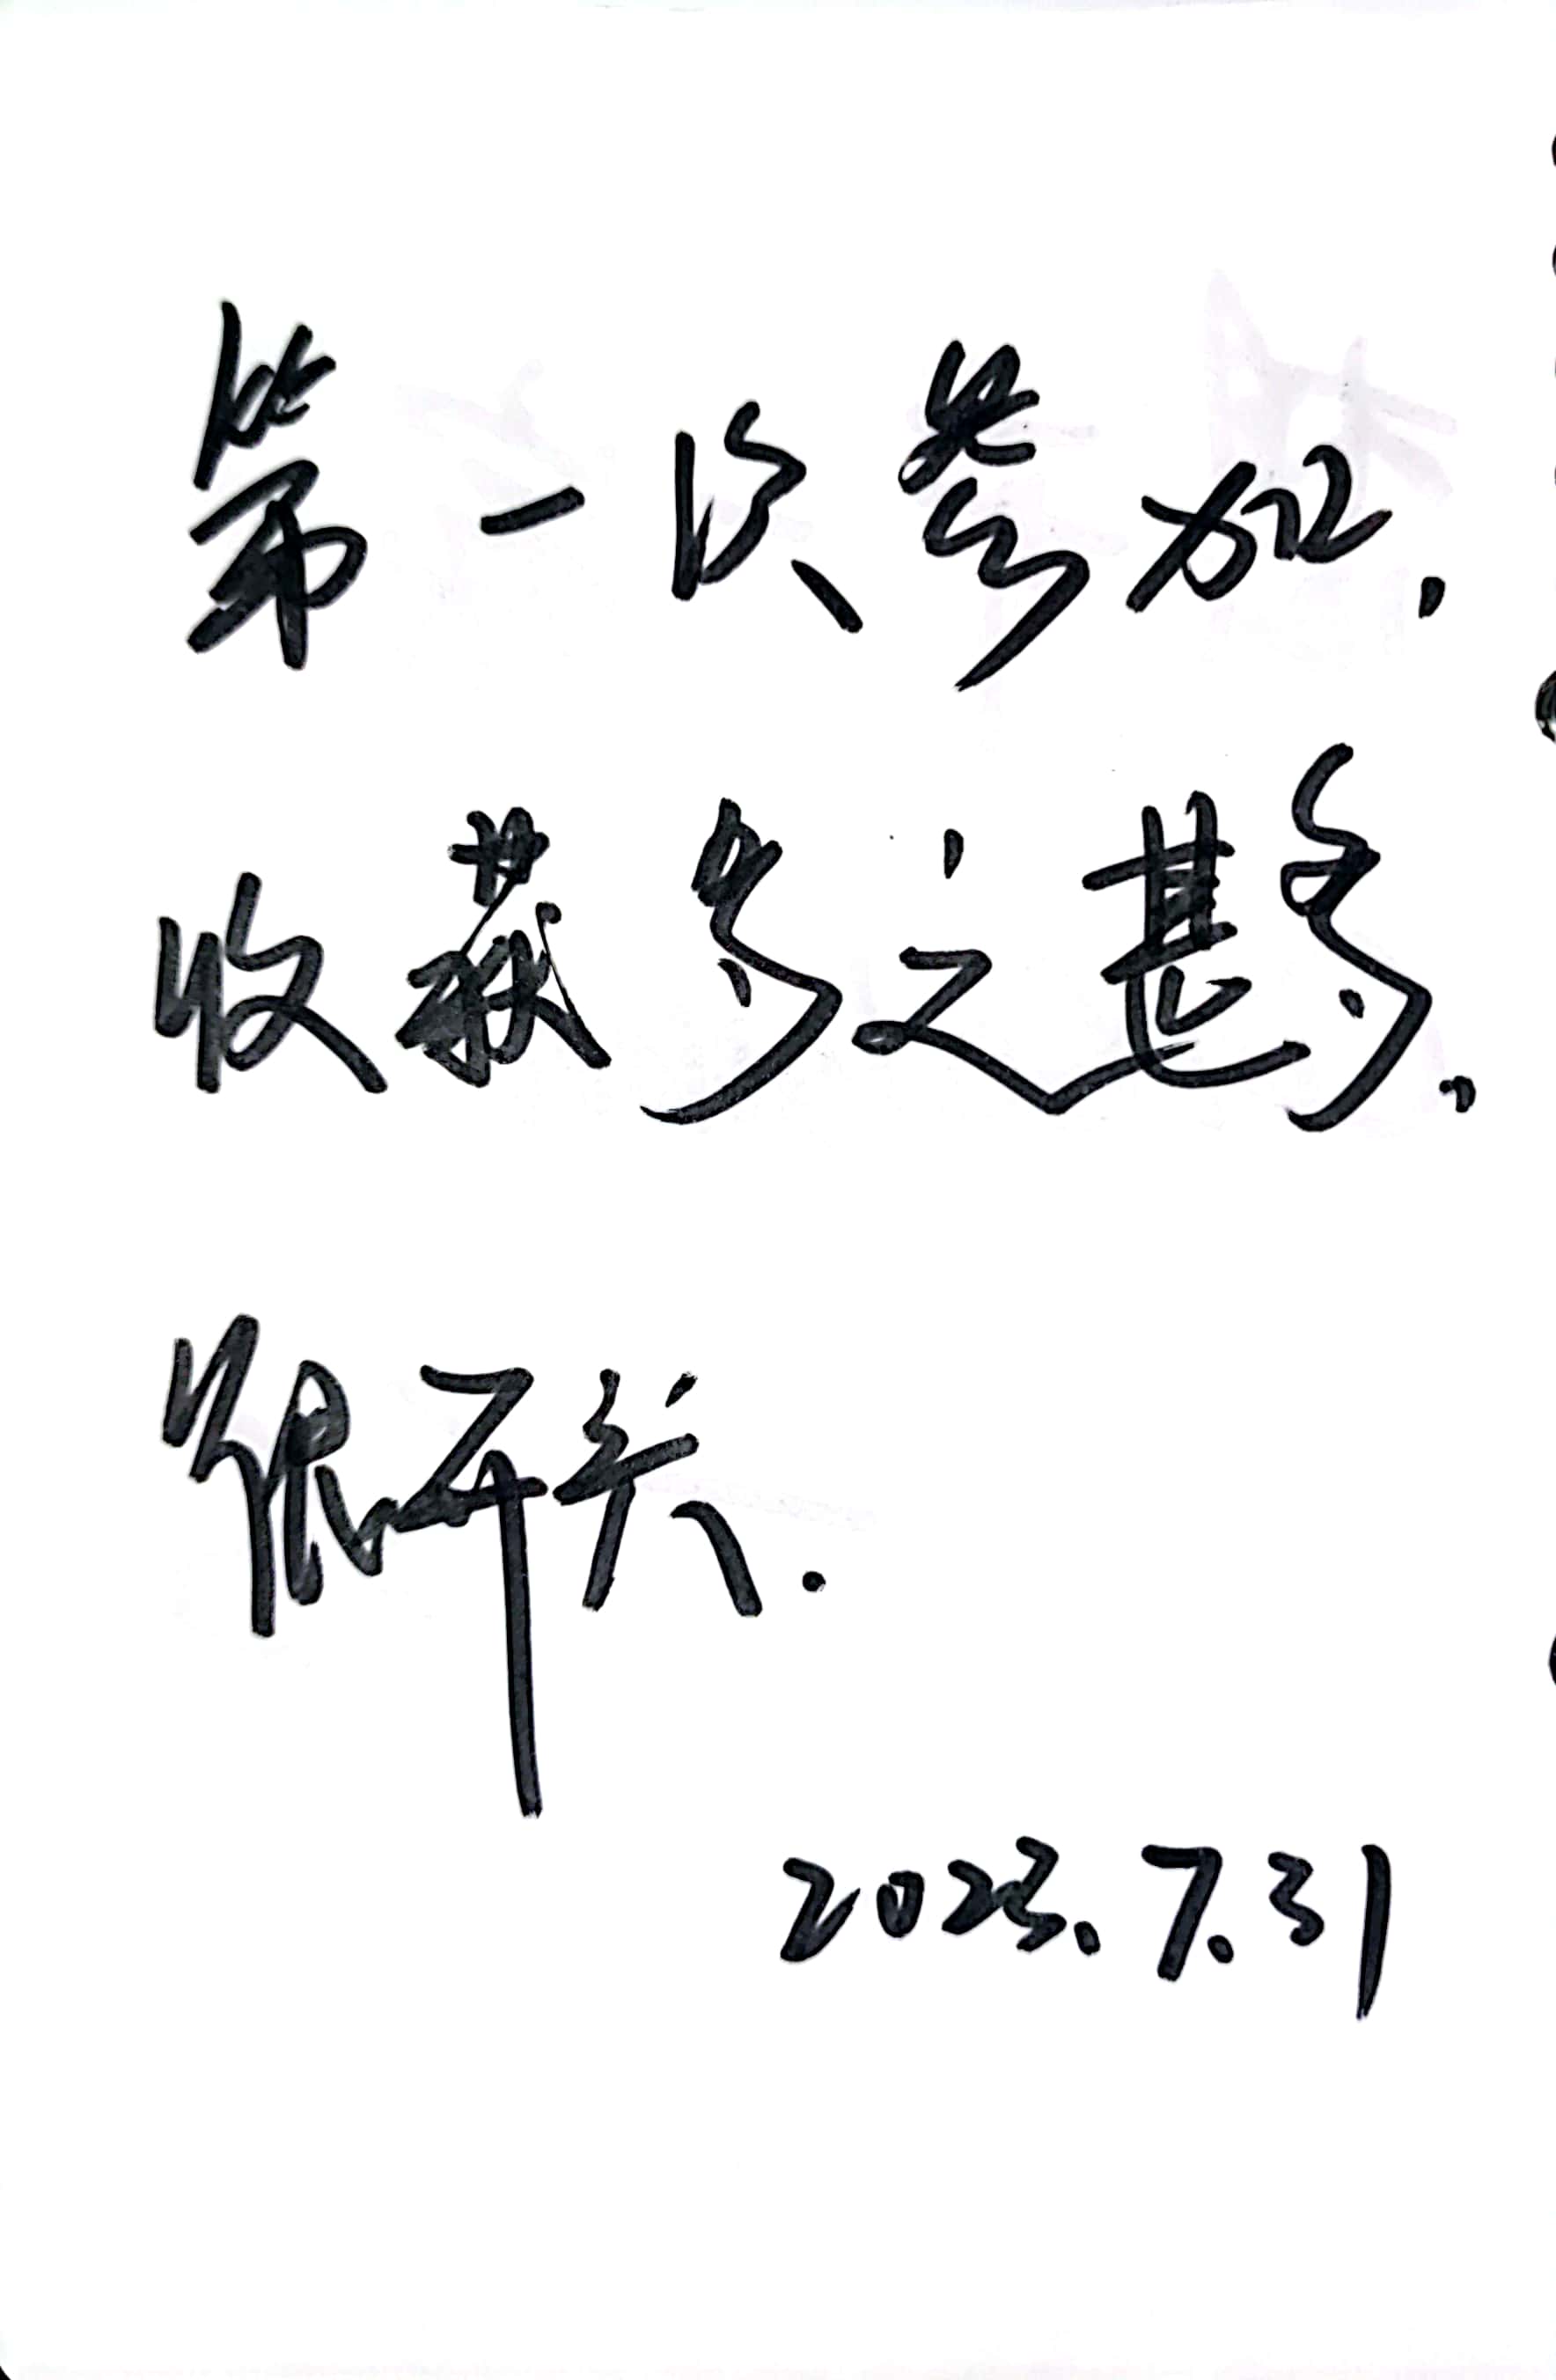 第一次参加,
收获多之甚多.
很开兴.
2023.7.31